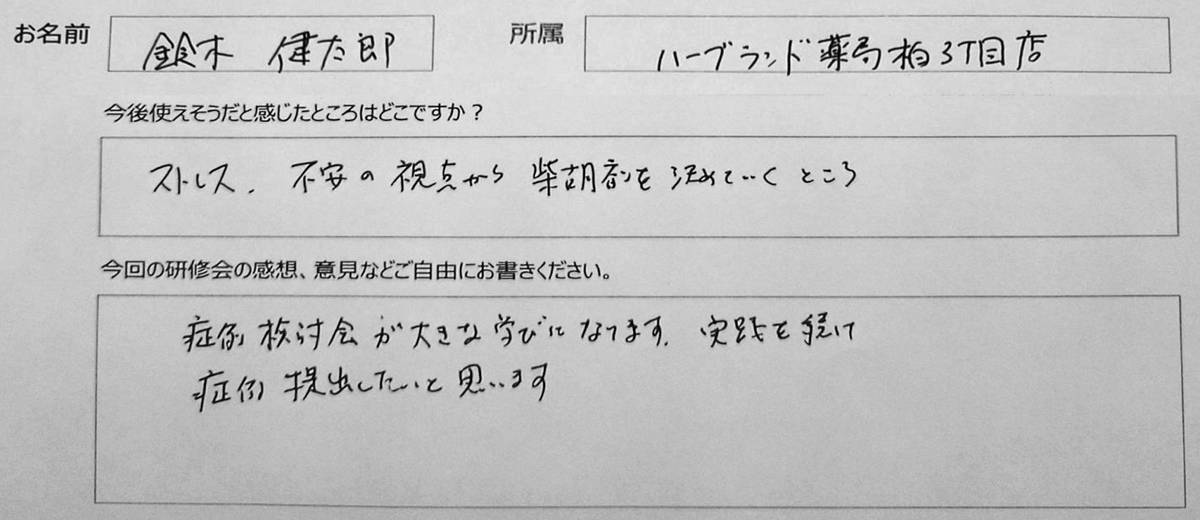 お名前 鈴木 健太郎 所属 ハーブランド薬局柏3丁目店
今後使えそうだと感じたところはどこですか？
ストレス、不安の視点から 柴胡剤を決めていくところ
今回の研修会の感想、意見などご自由にお書きください。
症例検討会が大きな学びになってます。実践を続け
症例提出したいと思います